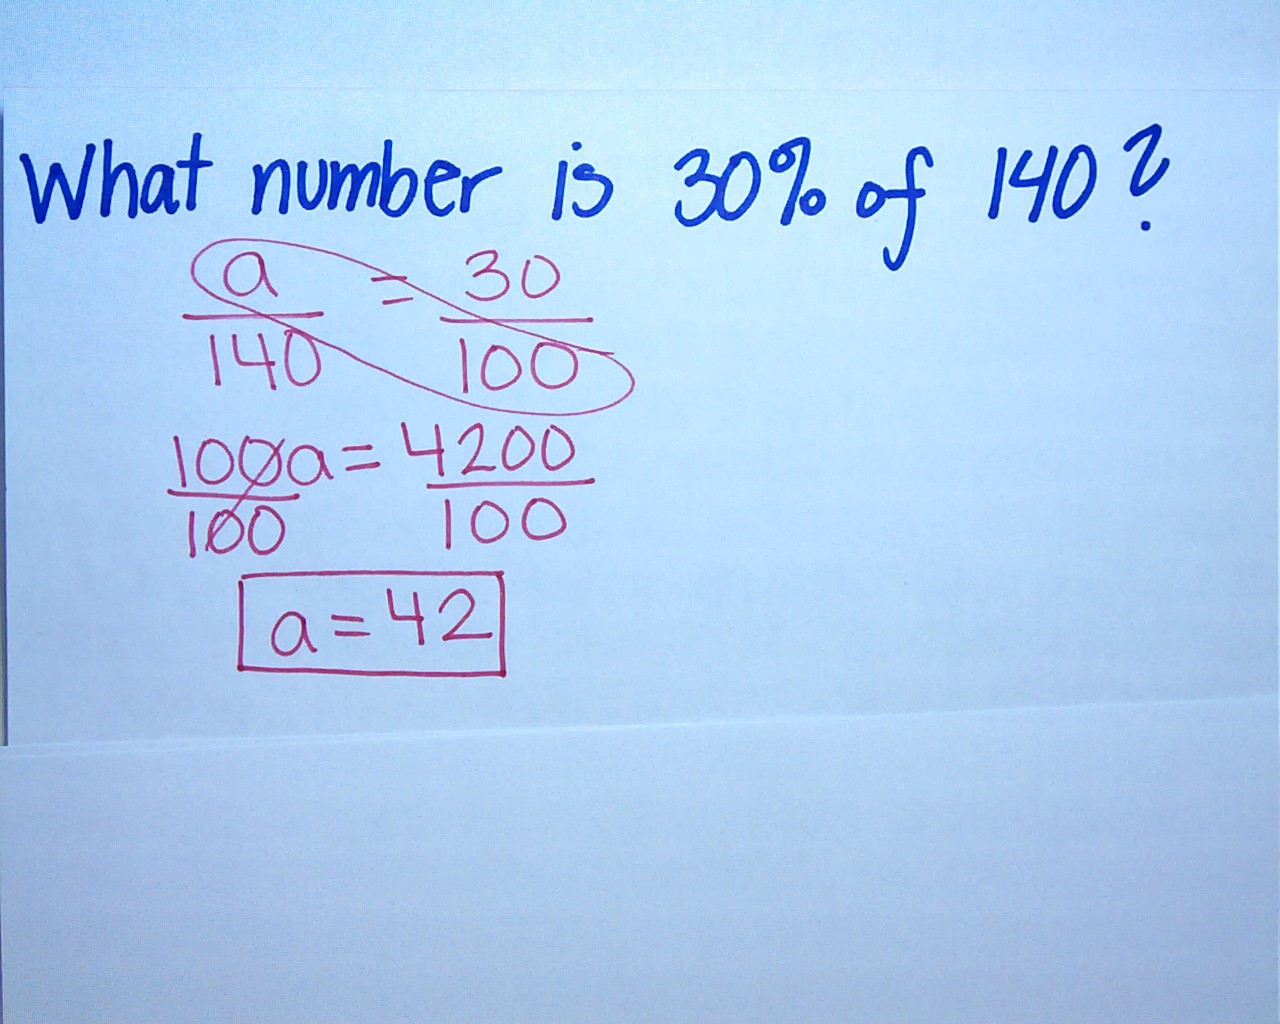 What number is 30% of 140?
a/140 = 30/100
100a/100 = 4200/100
a = 42